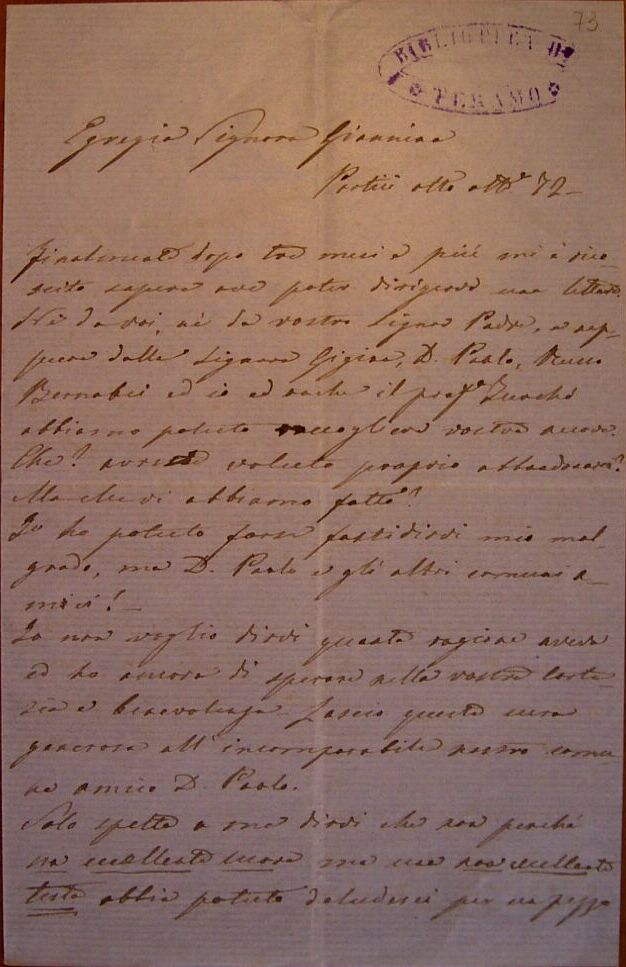 73
BIBLIOTECA D
TERAMO
Egregia Signora Giannina
Portici otto ott.e 72-
Finalmente dopo tre mesi e più mi è riu-
scito sapere ove poter dirigervi una lettera.
Nè da voi, nè da vostro Signor Padre, e nep-
pure dalla Signora Gigina, D. Paolo,
Bernabei ed io ed anche il prof.e
abbiamo potuto raccogliere vostre nuove.
Che? avreste voluto proprio abbandonarci?
Ma che vi abbiamo fatto?
Io ho potuto forse fastidirvi mio mal-
grado, ma D. Paolo e gli altri comuni a-
mici! -
Io non voglio dirvi quanta ragione aveva
ed ho ancora di sperare nella vostra corte-
sia e benevolenza - Lascio questa cura
generosa all'incomparabile nostro comu-
ne amico D. Paolo.
Solo spetta a me dirvi che non perché
un eccellente cuore ma una non eccellente
testa abbia potuto deluderci per un pezzo